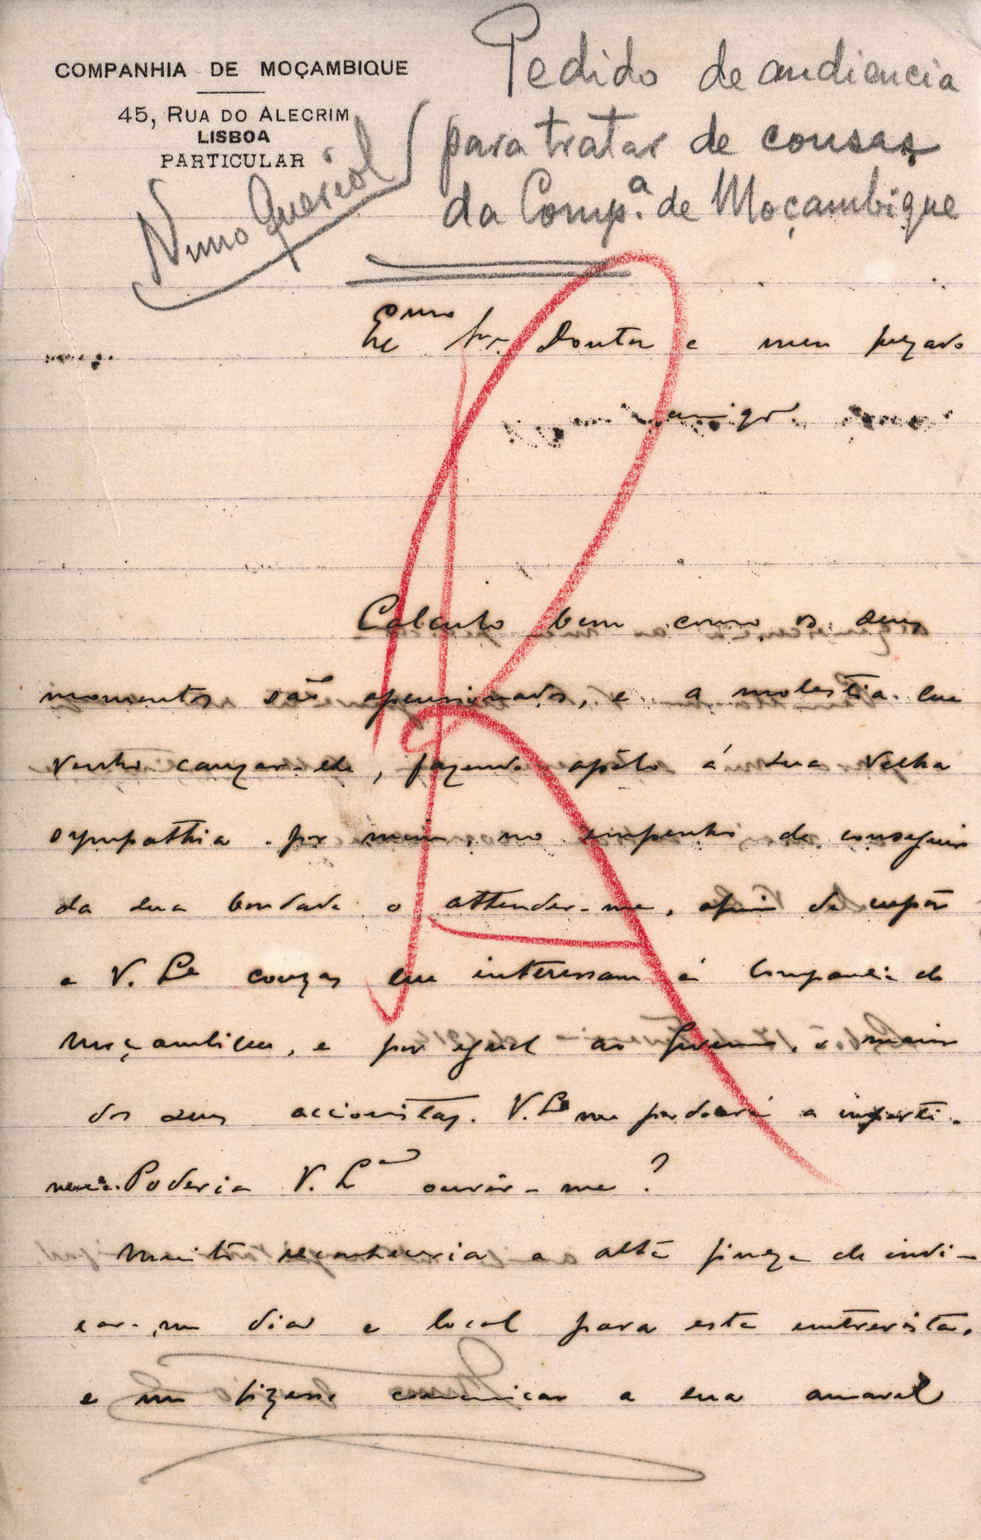 COMPANHIA DE MOÇAMBIQUE
45, RUA DO ALECRIM
LISBOA
PARTICULAR
Nuno Queriol
Pedido de audiencia
para tratar de cousas
da Comp.ª de Moçambique
Exmo Snr. Doutor e meu prezado
amigo.
Calculo bem como os seus
momentos são apensionados, e a molestia que
venho cançar-lhe, fazendo apêlo á sua velha
sympathia por mim no empenho de conseguir
da sua bondade o attender-me, afim de expôr
a V. Exª couzas que interessam á Companhia de
Moçambique, e por egual ao Governo, o maior
dos seus accionistas. V. Exª me perdoará a imperti-
nencia. Poderia V. Exª ouvir-me?
Muito reconheceria a alta fineza de indi-
car-me dia e local para esta entrevista,
e me fizesse comunicar a sua amavel